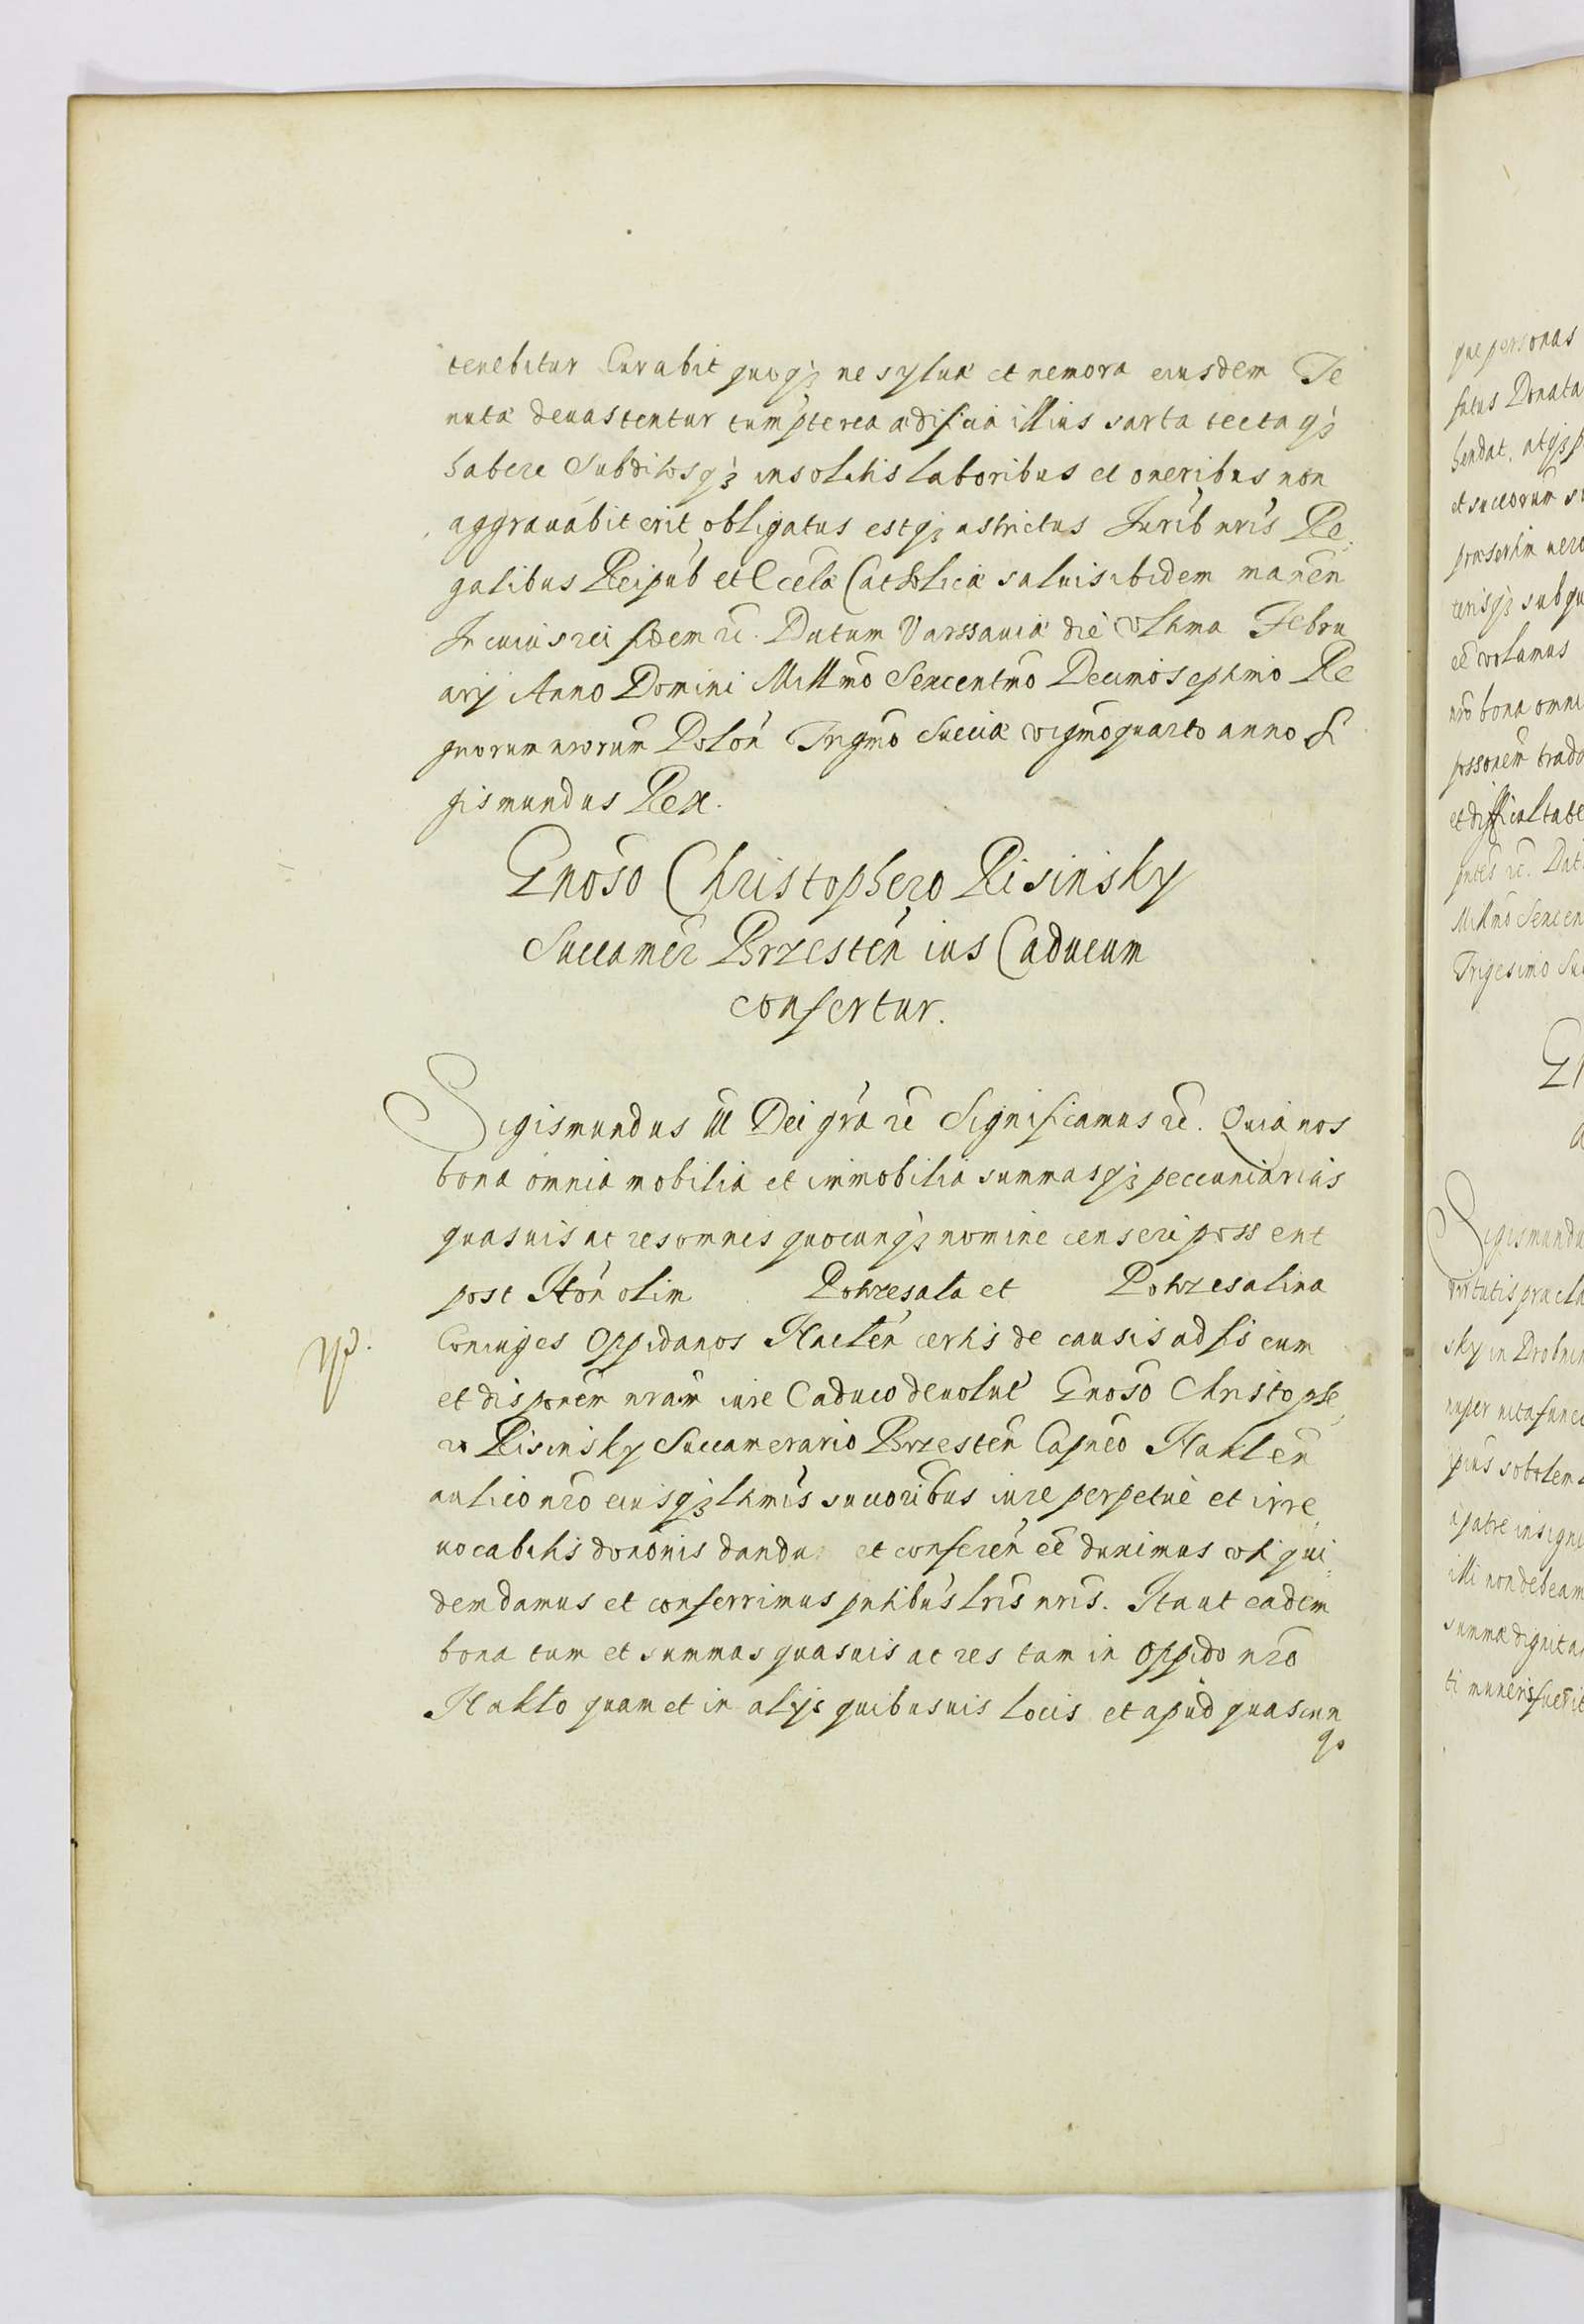 tenebitur Curabit quoq3 ne syluæ et nemora eiusdem Te
nutæ deuastentur tum pterea ædificia illius sarta tectaq3
habere Subditosq3 insolitis laboribus et oneribus non
aggrauabit erit obligatus estq3 astrictus Jurib nris Re
galibus Reipub et Eccla Catholicæ saluis ibidem manen
In cuius rei fidem rc. Datum Varssauiæ die vltima Febru
arij Anno Domini Millmo Sexcentmo Decimoseptimo Re
gnorum nrorum Polon Trigmo Sueciæ vigmoquarto anno Si
gismundus Rex.
Gnoso Christophero Risinsky
Succamer Brzesten ius Caducum
confertur.
Sigismundus III Dei gra rc Significamus rc. Quia nos
bona omnia mobilia et immobilia summasq3 peccuniarias
quasuis ac res omnes quocunq3 nomine censeri possent
post Hon olim Powzesala et Powzesalina
Coniuges Oppidanos Naclen certis de causis ad fis cum
et disponem nram iure Caduco deuolut Gnoso Christophe
ro Risinsky Succamerario Brzesten Capneo Naklen
aulico nro eiusq3 ltmis succoribus iure perpetuè et irre
uocabilis dononis dandu et conferen ee duximus vti qui
dem damus et conferrimus pntibus lris nris. Ita ut eadem
bona tum et summas quasuis ac res tam in Oppido nro
Naklo quam et in alijs quibusuis locis et apud quascun
q3
que personas
fatus Donata
hendat, atq3 p
et succorum su
præsertim uero
terisq3 subqu
ee volumus
nro bona omni
possonem trado
et difficultate
pntes rc. Dat
Millmo Sexcen
Trigesimo Su
Sigismundu
virtutis præcla
sky in Drobnin
nuper uita func
ipius sobolem
a patre insigni
illi non debeam
summæ dignita
ti muneris fuerit